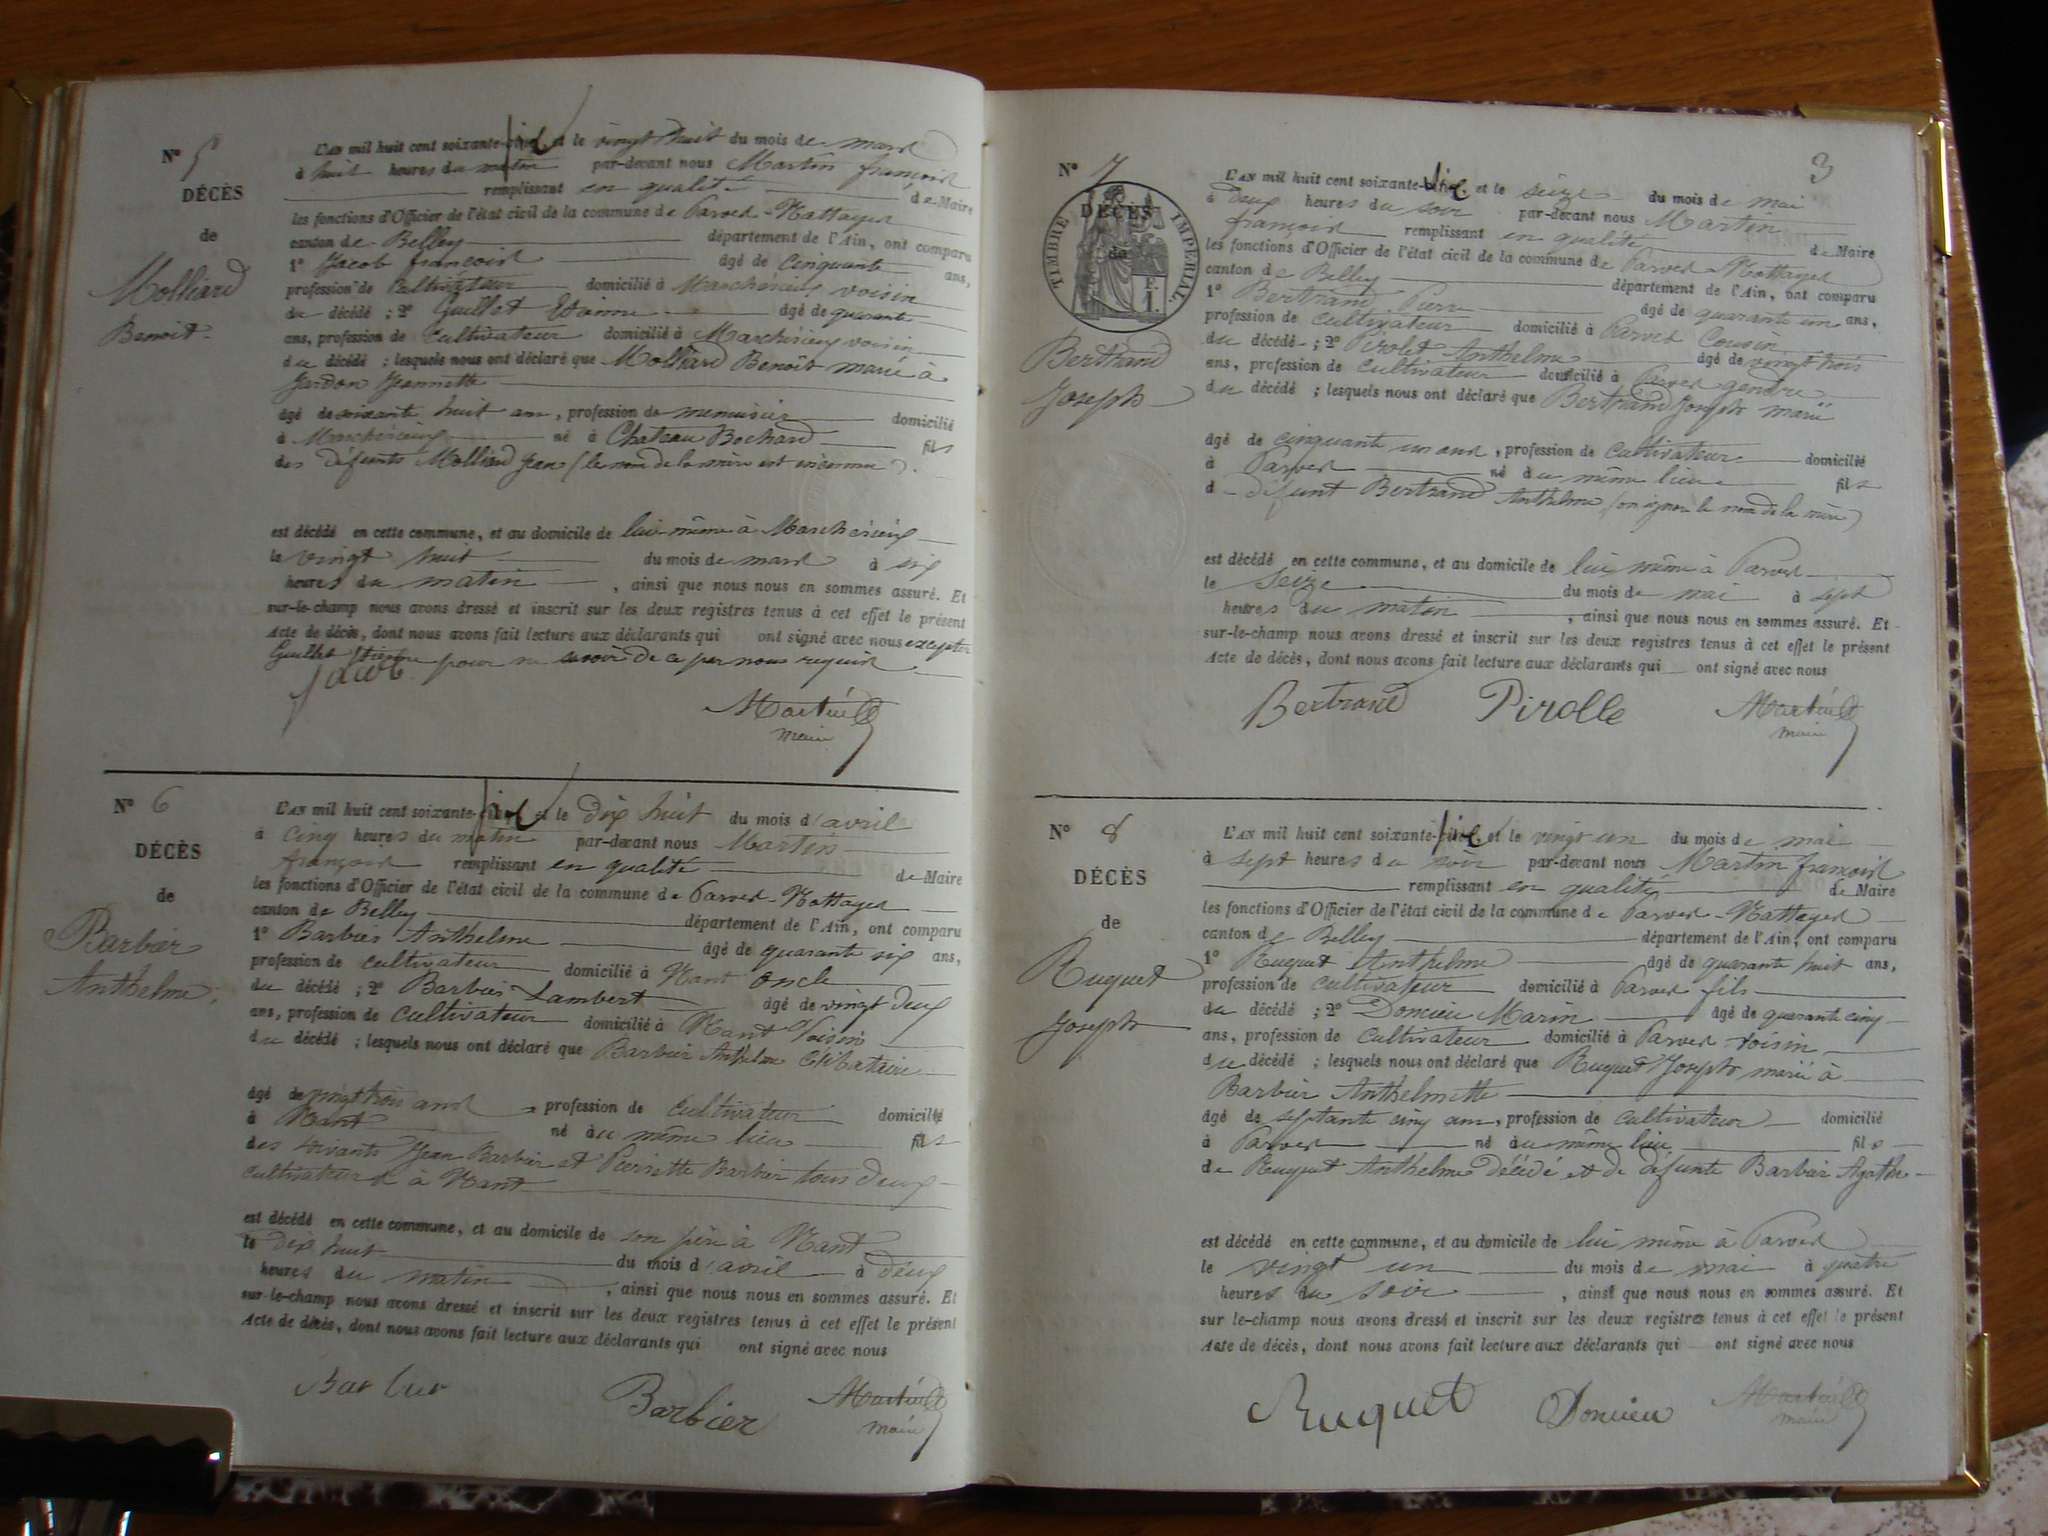 N° 5
DÉCÈS
de
Molliard
Benoit
L'AN mil huit cent soixante-six et le vingt huit du mois de mars
à huit heures du matin par-devant nous Martin françois
remplissant en qualité de Maire
les fonctions d'Officier de l'état civil de la commune de Parves-Nattages
canton de Belley département de l'Ain, ont comparu
1° Jacob françois âgé de cinquante ans,
profession de cultivateur domicilié à voisin
du décédé ; 2° Guillet Etienne âgé de quarante
ans, profession de cultivateur domicilié à voisin
du décédé ; lesquels nous ont déclaré que Molliard Benoît marié à
Jeannette
âgé de soixante huit ans, profession de menuisier domicilié
à né à Chateau Bochard fils
des défunts Molliard Jean (le nom de la mère est inconnu).
est décédé en cette commune, et au domicile de lui même à
le vingt huit du mois de mars à six
heures du matin, ainsi que nous nous en sommes assuré. Et
sur-le-champ nous avons dressé et inscrit sur les deux registres tenus à cet effet le présent
Acte de décès, dont nous avons fait lecture aux déclarants qui ont signé avec nous excepter
Guillet Etienne pour ne savoir de ce par nous requis
Jacob
Martin
maire
N° 6
DÉCÈS
de
Barbier
Anthelme
L'AN mil huit cent soixante-six et le dix huit du mois d'avril
à cinq heures du matin par-devant nous Martin
françois remplissant en qualité de Maire
les fonctions d'Officier de l'état civil de la commune de Parves-Nattages
canton de Belley département de l'Ain, ont comparu
1° Barbier Anthelme âgé de quarante six ans,
profession de cultivateur domicilié à Nant oncle
du décédé ; 2° Barbier Lambert âgé de vingt deux
ans, profession de cultivateur domicilié à Nant Voisin
du décédé ; lesquels nous ont déclaré que Barbier Anthelme Célibataire
âgé de vingt trois ans, profession de cultivateur domicilié
à Nant né au même lieu fils
des vivants Jean Barbier et Pierrette Barbier tous deux
cultivateurs à Nant
est décédé en cette commune, et au domicile de son père à Nant
le dix huit du mois d'avril à deux
heures du matin, ainsi que nous nous en sommes assuré. Et
sur-le-champ nous avons dressé et inscrit sur les deux registres tenus à cet effet le présent
Acte de décès, dont nous avons fait lecture aux déclarants qui ont signé avec nous
Barbier
Barbier
Martin
maire
3
N° 7
DÉCÈS
de
TIMBRE IMPÉRIAL
Bertrand
Joseph
L'AN mil huit cent soixante-six et le seize du mois de mai
à deux heures du soir par-devant nous Martin
françois remplissant en qualité de Maire
les fonctions d'Officier de l'état civil de la commune de Parves-Nattages
canton de Belley département de l'Ain, ont comparu
1° Bertrand Pierre âgé de quarante un ans,
profession de cultivateur domicilié à Parves Cousin
du décédé ; 2° Pirolet Anthelme âgé de vingt trois
ans, profession de cultivateur domicilié à Parves gendre
du décédé ; lesquels nous ont déclaré que Bertrand Joseph marié
âgé de cinquante un ans, profession de cultivateur domicilié
à Parves né au même lieu fils
d défunt Bertrand Anthelme (on ignore le nom de la mère)
est décédé en cette commune, et au domicile de lui même à Parves
le seize du mois de mai à sept
heures du matin, ainsi que nous nous en sommes assuré. Et
sur-le-champ nous avons dressé et inscrit sur les deux registres tenus à cet effet le présent
Acte de décès, dont nous avons fait lecture aux déclarants qui ont signé avec nous
Bertrand Pirolle Martin
maire
N° 8
DÉCÈS
de
Ruquet
Joseph
L'AN mil huit cent soixante-six et le vingt un du mois de mai
à sept heures du soir par-devant nous Martin françois
remplissant en qualité de Maire
les fonctions d'Officier de l'état civil de la commune de Parves-Nattages
canton de Belley département de l'Ain, ont comparu
1° Ruquet Anthelme âgé de quarante huit ans,
profession de cultivateur domicilié à Parves fils
du décédé ; 2° Domieu Marin âgé de quarante cinq
ans, profession de cultivateur domicilié à Parves voisin
du décédé ; lesquels nous ont déclaré que Ruquet Joseph marié à
Barbier Anthelmette
âgé de septante cinq ans, profession de cultivateur domicilié
à Parves né au même lieu fils
de Ruquet Anthelme décédé et de défunte Barbier Agathe
est décédé en cette commune, et au domicile de lui même à Parves
le vingt un du mois de mai à quatre
heures du soir, ainsi que nous nous en sommes assuré. Et
sur le-champ nous avons dressé et inscrit sur les deux registres tenus à cet effet le présent
Acte de décès, dont nous avons fait lecture aux déclarants qui ont signé avec nous
Ruquet Domieu Martin
maire